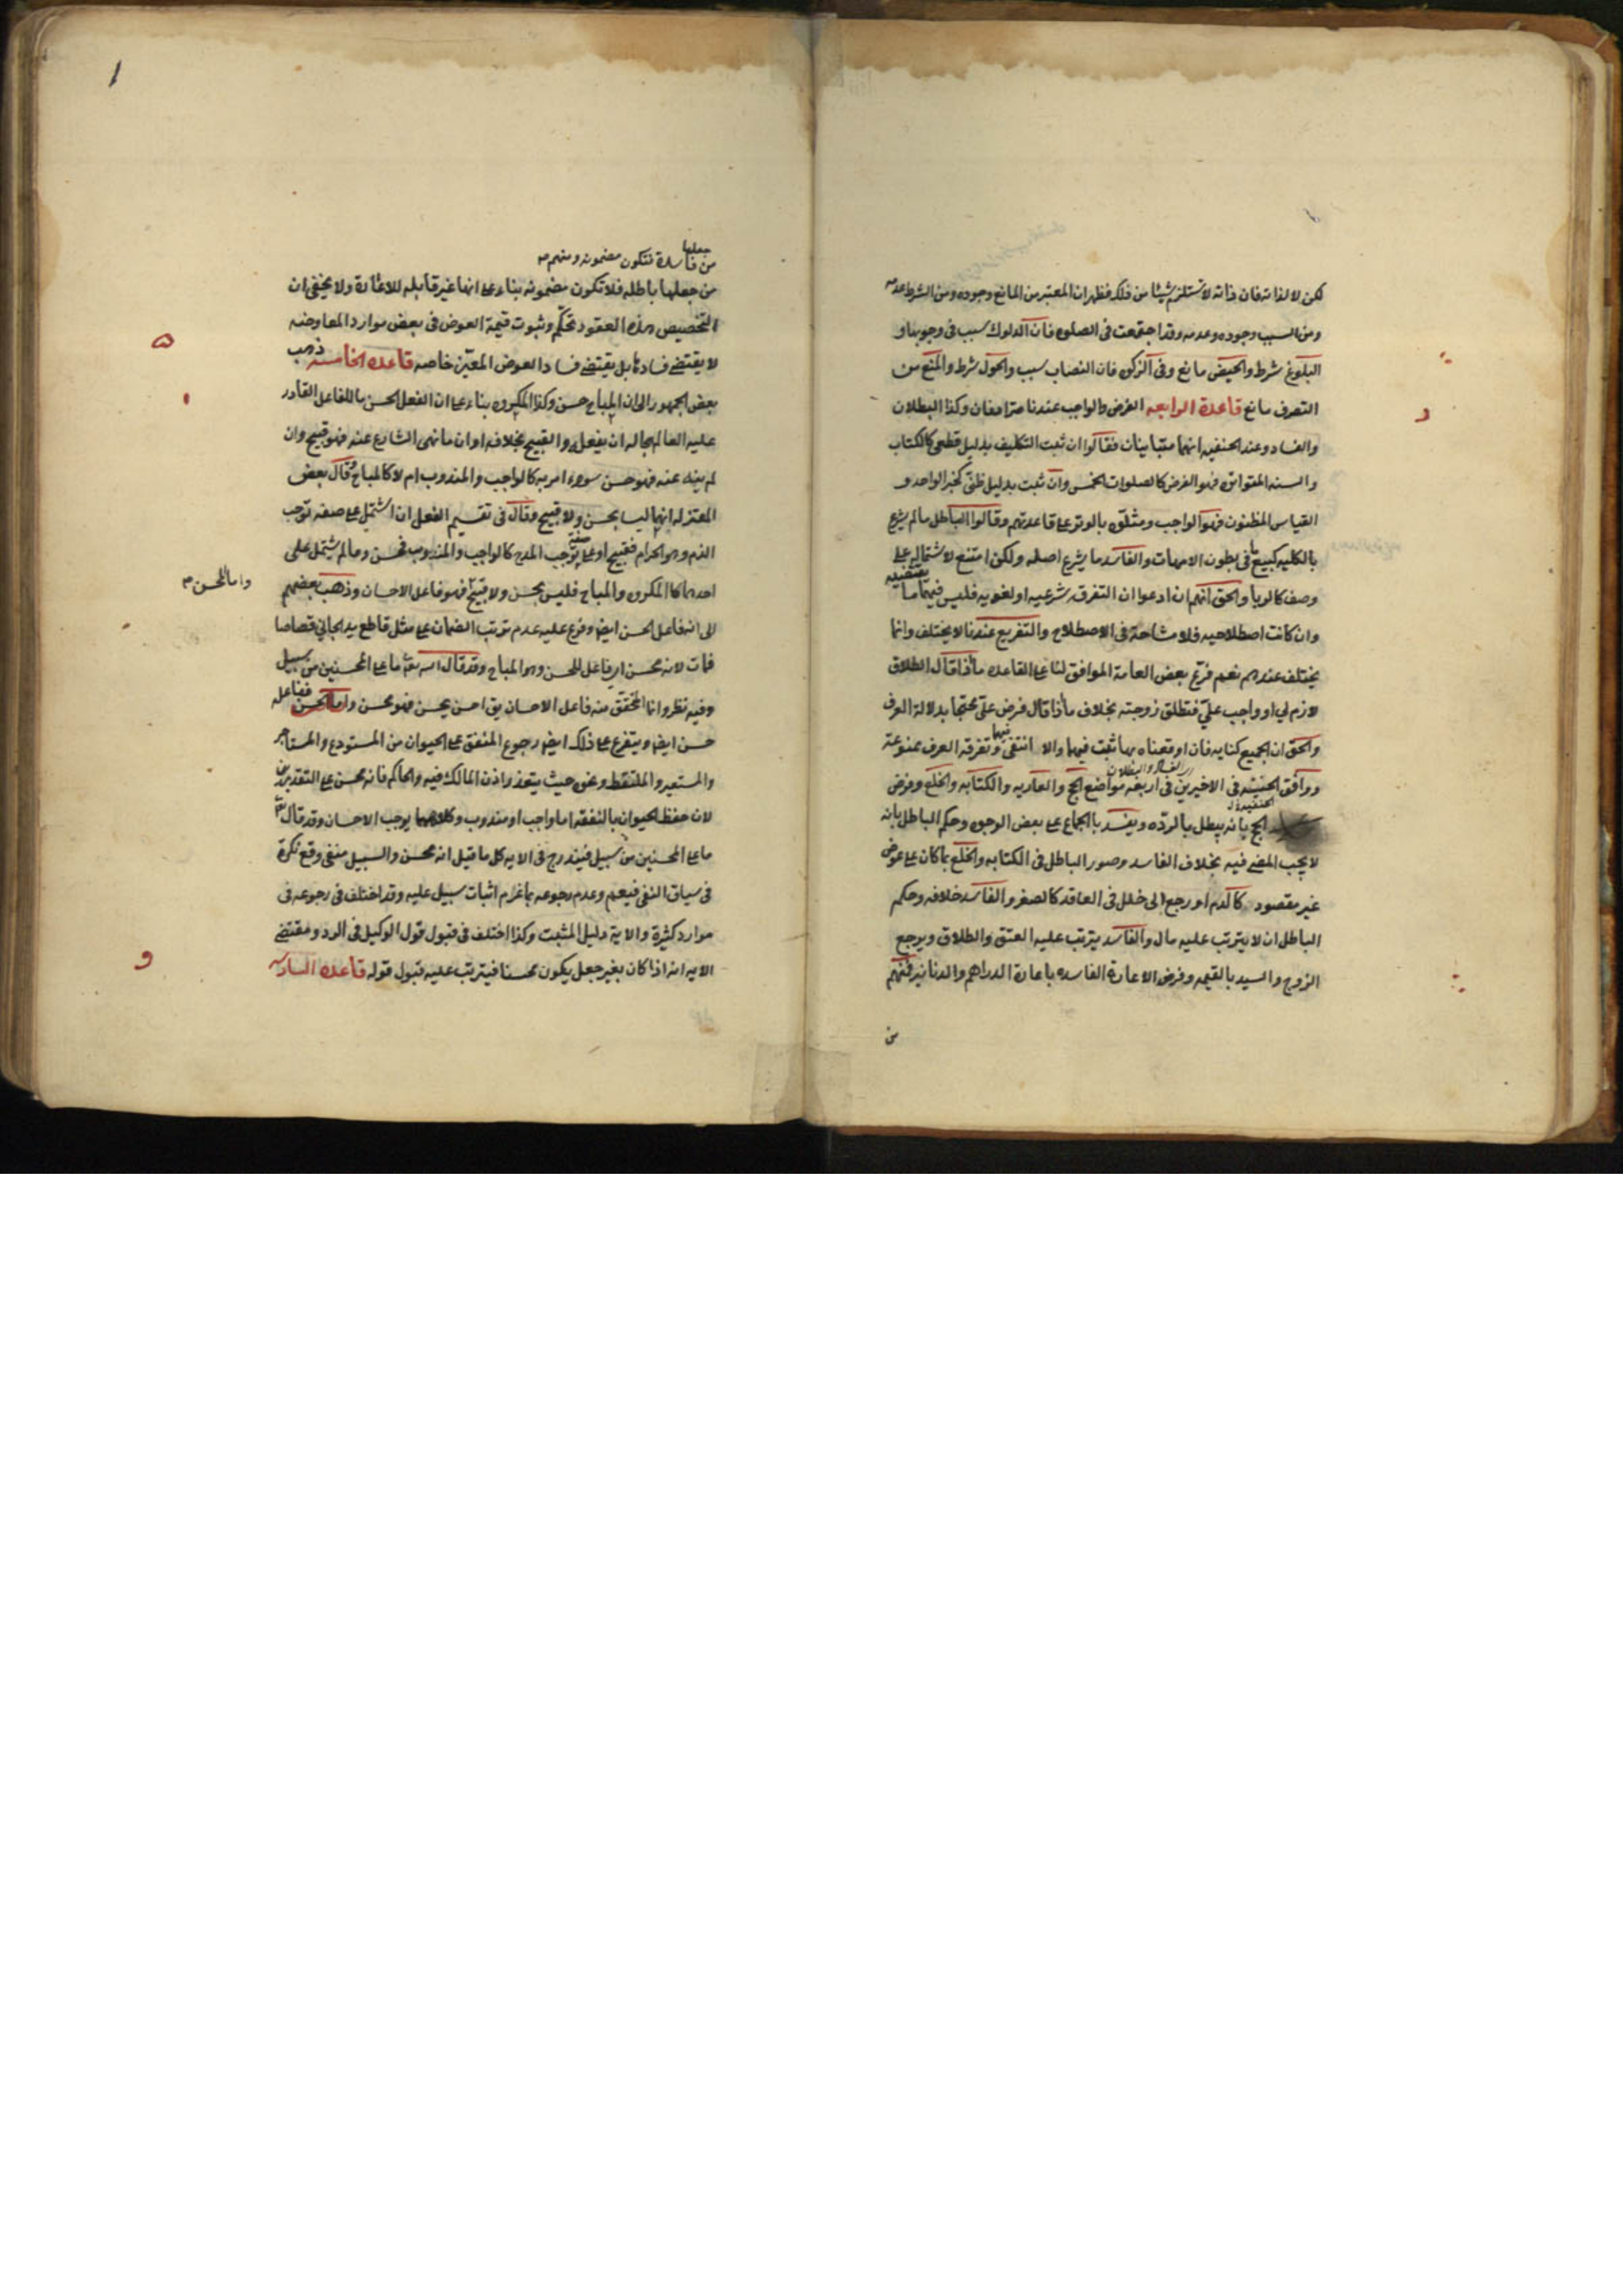 لكن لا لذاته فان ذاته لا تستلزم شيئا من ذلك فظهر ان المعتبر من المانع وجوده ومن الشرط عدمه
ومن السبب وجوده وعدمه وقد اجتمعت فى الصلوه فان الدلوك سبب فى وجوبها و
البلوغ شرط والحيض مانع وفى الزكوه فان النصاب سبب والحول شرط والمنع من
التصرف مانع قاعدة الرابعه الفرض والواجب عندنا مترادفان وكذا البطلان
والفساد وعند الحنفيه انهما متباينان فقالوا ان ثبت التكليف بدليل قطعى كالكتاب
والسنه المتواتره فهو الفرض كالصلوات الخمس وان ثبت بدليل ظنى كخبر الواحد و
القياس المظنون فهو الواجب ومثلوه بالوتر على قاعدتهم وقالوا الباطل ما لم يشرع
بالكليه كبيع ما فى بطون الامهات والفاسد ما يشرع اصله ولكن امتنع لاشتماله على
وصف كالربا والحق انهم ان ادعوا ان التفرقه شرعيه او لغويه فليس فيهما ما يقتضيه
وان كانت اصطلاحيه فلا مشاحة فى الاصطلاح والتفريع عندنا لا يختلف وانما
يختلف عندهم نعم فرع بعض العامة الموافق لنا على القاعده ما اذا قال الطلاق
لازم لي او واجب عليّ فتطلق زوجته بخلاف ما اذا قال فرض علي محتجا بدلالة العرف
والحق ان الجميع كنايه فان اوقعناه بها ثبت فيهما والا انتفى فيهما وتفرقه العرف ممنوعة
ووافق الحنفيه فى الاخيرين اى الفساد والبطلان فى اربعه مواضع الحج والعاريه والكتابه والخلع وفرض
الحج بانه يبطل بالردّه ويفسد بالجماع على بعض الوجوه وحكم الباطل بانه
لا يجب المضى فيه بخلاف الفاسد وصور الباطل فى الكتابه والخلع بما كان على عوض
غير مقصود كالدم او رجع الى خلل فى العاقد كالصغر والفاسد خلافه وحكم
الباطل ان لا يترتب عليه مال والفاسد يترتب عليه العتق والطلاق ويرجع
الزوج والسيد بالقيمه وفرض الاعارة الفاسده باعارة الدراهم والدنانير فمنهم
من
من جعلها فاسدة فتكون مضمونه ومنهم
من جعلها باطله فلا تكون مضمونه بناء على انها غير قابله للاعارة ولا يخفى ان
التخصيص بهذه العقود تحكم وثبوت قيمة العوض فى بعض موارد المعاوضه
لا يقتضى فسادها بل يقتضى فساد العوض المعيّن خاصه قاعده الخامسه ذهب
بعض الجمهور الى ان المباح حسن وكذا المكروه بناء على ان الفعل الحسن ما للفاعل القادر
عليه العالم بحاله ان يفعله والقبيح بخلافه او ان ما نهى الشارع عنه فهو قبيح وان
لم ينه عنه فهو حسن سواء امر به كالواجب والمندوب ام لا كالمباح وقال بعض
المعتزله انهما ليسا بحسن ولا قبيح وقال فى تقسيم الفعل ان اشتمل على صفه توجب
الذم وهو الحرام فقبيح او على صفه توجب المدح كالواجب والمندوب فحسن وما لم يشتمل على
احدهما كالمكروه والمباح فليس بحسن ولا قبيح واما المحسن فهو فاعل الاحسان وذهب بعضهم
الى انه فاعل الحسن ايضا وفرع عليه عدم ترتب الضمان على مثل قاطع يد الجاني قصاصا
فمات لانه محسن اى فاعل للحسن وهو المباح وقد قال الله تعالى ما على المحسنين من سبيل
وفيه نظر وانما المحقق منه فاعل الاحسان يق احسن يحسن فهو محسن واما الحسن ففاعله
حسن ايضا ويتفرع على ذلك ايضا رجوع المنفق على الحيوان من المستودع والمستاجر
والمستعير والملتقط ونحوه حيث يتعذر اذن المالك فيه والحاكم فانه محسن على التقديرين
لان حفظ الحيوان بالنفقه اما واجب او مندوب وكلاهما يوجب الاحسان وقد قال تعالى
ما على المحسنين من سبيل فيندرج فى الايه كل ما قيل انه محسن والسبيل منفى وقع نكرة
فى سياق النفى فيعم وعدم رجوعه بما غرم اثبات سبيل عليه وقد اختلف فى رجوعه فى
موارد كثيرة والاية دليل المثبت وكذا اختلف فى قبول قول الوكيل فى الرد ومقتضى
الايه انه اذا كان بغير جعل يكون محسنا فيترتب عليه قبول قوله قاعده السادسه